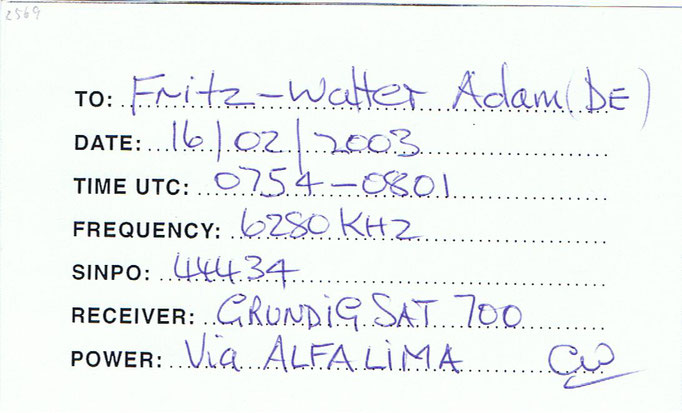 2569
TO: Fritz-Walter Adam (DE)
DATE: 16/02/2003
TIME UTC: 0754-0801
FREQUENCY: 6280 KHz
SINPO: 44434
RECEIVER: GRUNDIG SAT 700
POWER: Via ALFA LIMA